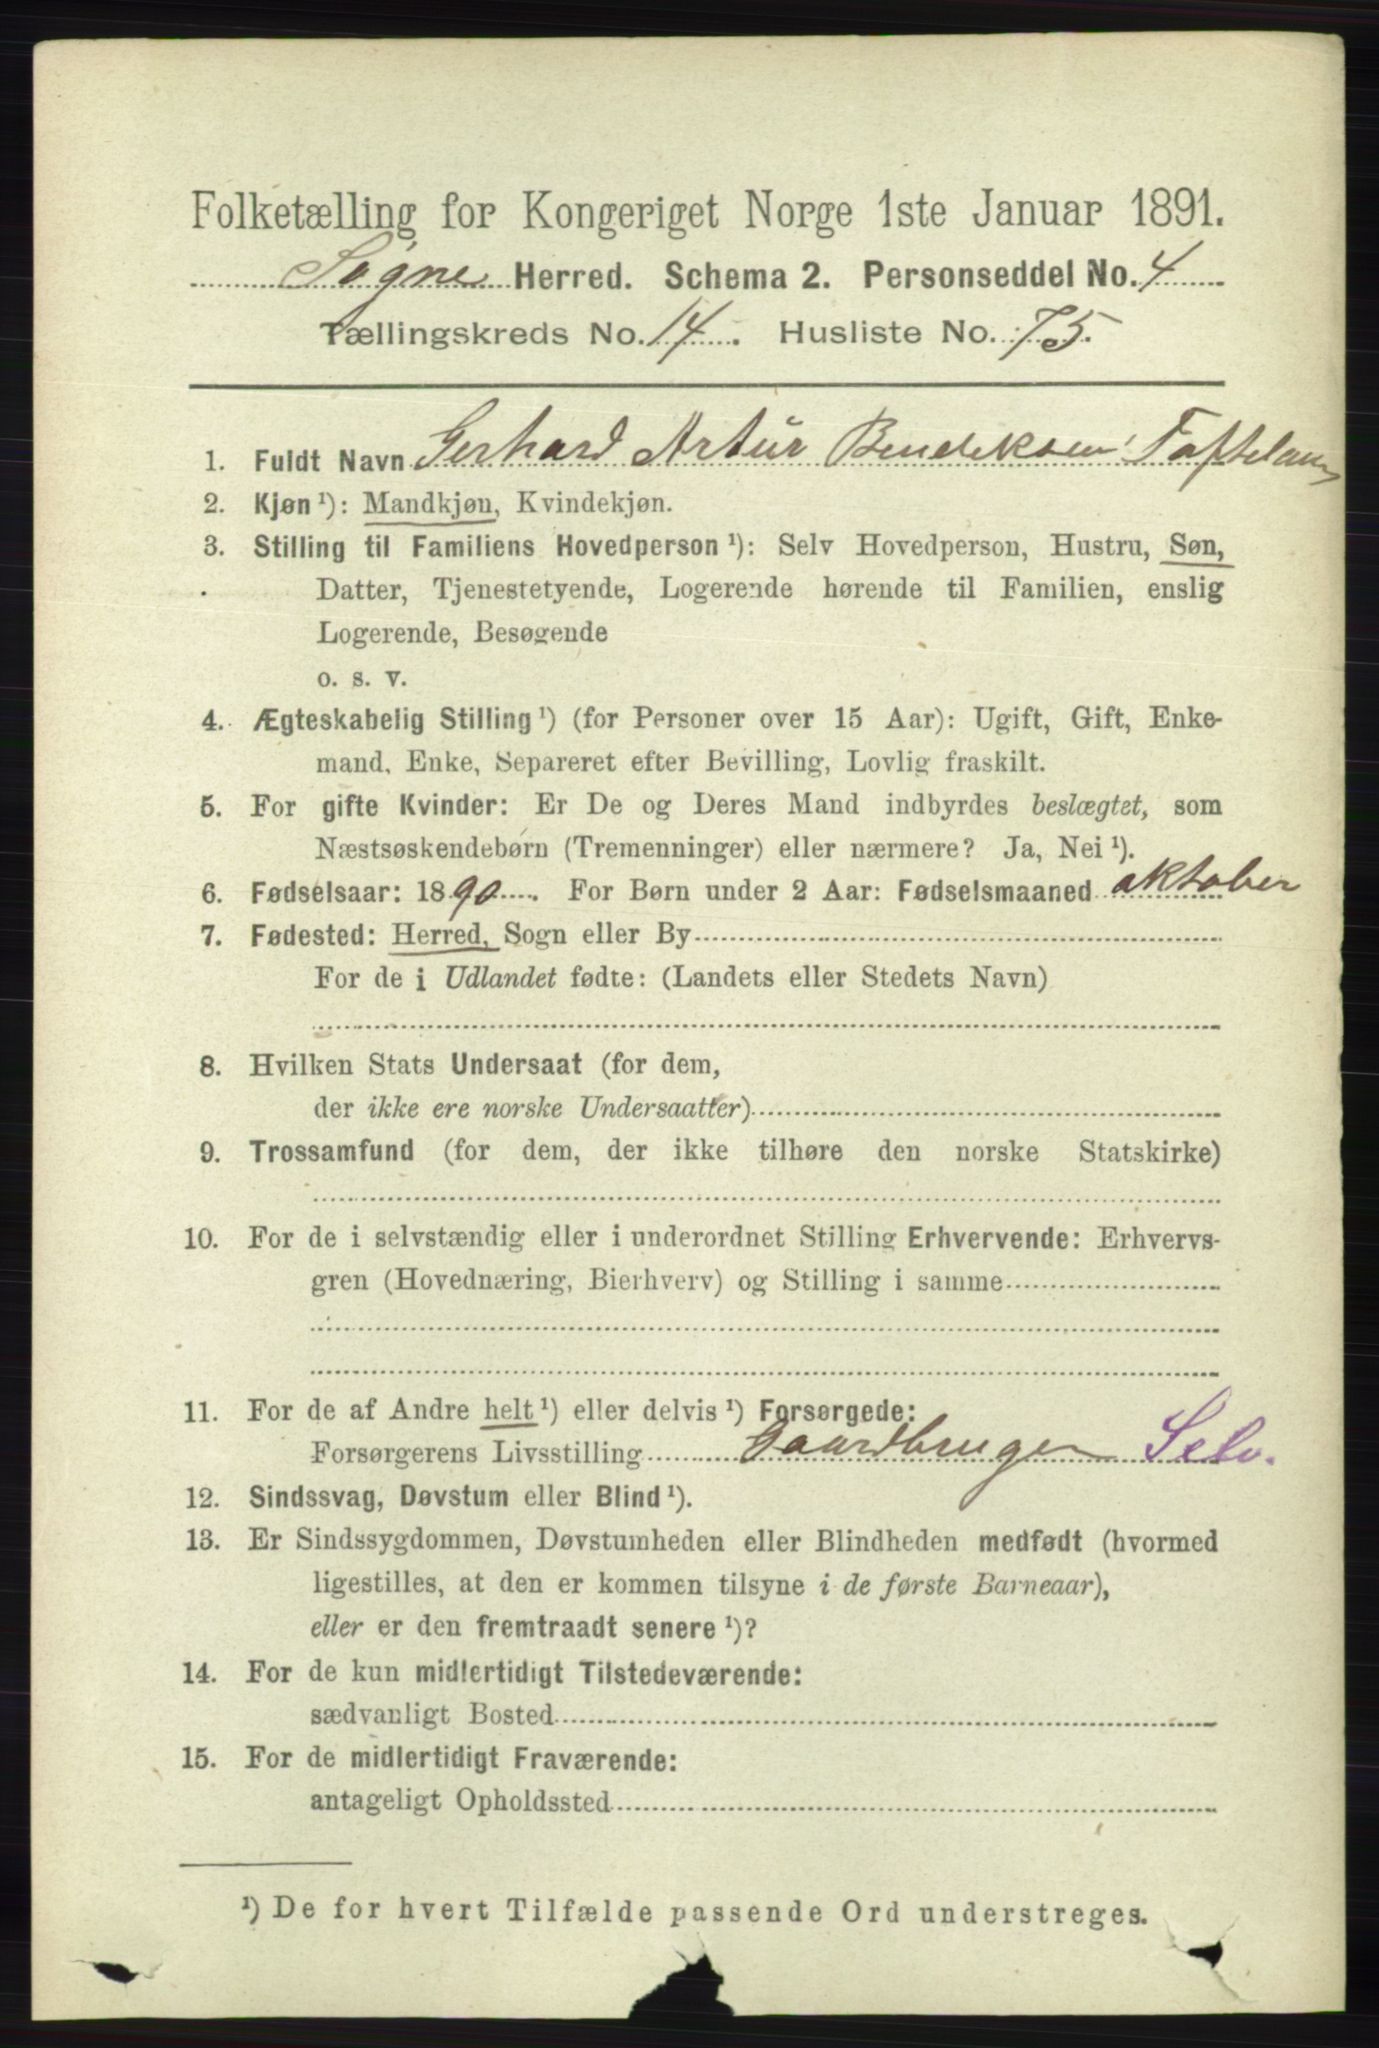 Folketælling for Kongeriget Norge 1ste Januar 1891.
Søgne Herred. Schema 2. Personseddel No. 4
Tællingskreds No. 14. Husliste No. 75.
1. Fuldt Navn Gerhard Artur Bendiksen Tofteland
2. Kjøn ¹): Mandkjøn, Kvindekjøn.
3. Stilling til Familiens Hovedperson ¹): Selv Hovedperson, Hustru, Søn,
Datter, Tjenestetyende, Logerende hørende til Familien, enslig
Logerende, Besøgende
o. s. v.
4. Ægteskabelig Stilling ¹) (for Personer over 15 Aar): Ugift, Gift, Enke-
mand, Enke, Separeret efter Bevilling, Lovlig fraskilt.
5. For gifte Kvinder: Er De og Deres Mand indbyrdes beslægtet, som
Næstsøskendebørn (Tremenninger) eller nærmere? Ja, Nei ¹).
6. Fødselsaar: 1890. For Børn under 2 Aar: Fødselsmaaned oktober
7. Fødested: Herred, Sogn eller By
For de i Udlandet fødte: (Landets eller Stedets Navn)
8. Hvilken Stats Undersaat (for dem,
der ikke ere norske Undersaatter)
9. Trossamfund (for dem, der ikke tilhøre den norske Statskirke)
10. For de i selvstændig eller i underordnet Stilling Erhvervende: Erhvervs-
gren (Hovednæring, Bierhverv) og Stilling i samme
11. For de af Andre helt ¹) eller delvis ¹) Forsørgede:
Forsørgerens Livsstilling Gaardbruger Selv.
12. Sindssvag, Døvstum eller Blind ¹).
13. Er Sindssygdommen, Døvstumheden eller Blindheden medfødt (hvormed
ligestilles, at den er kommen tilsyne i de første Barneaar),
eller er den fremtraadt senere ¹)?
14. For de kun midlertidigt Tilstedeværende:
sædvanligt Bosted
15. For de midlertidigt Fraværende:
antageligt Opholdssted
¹) De for hvert Tilfælde passende Ord understreges.